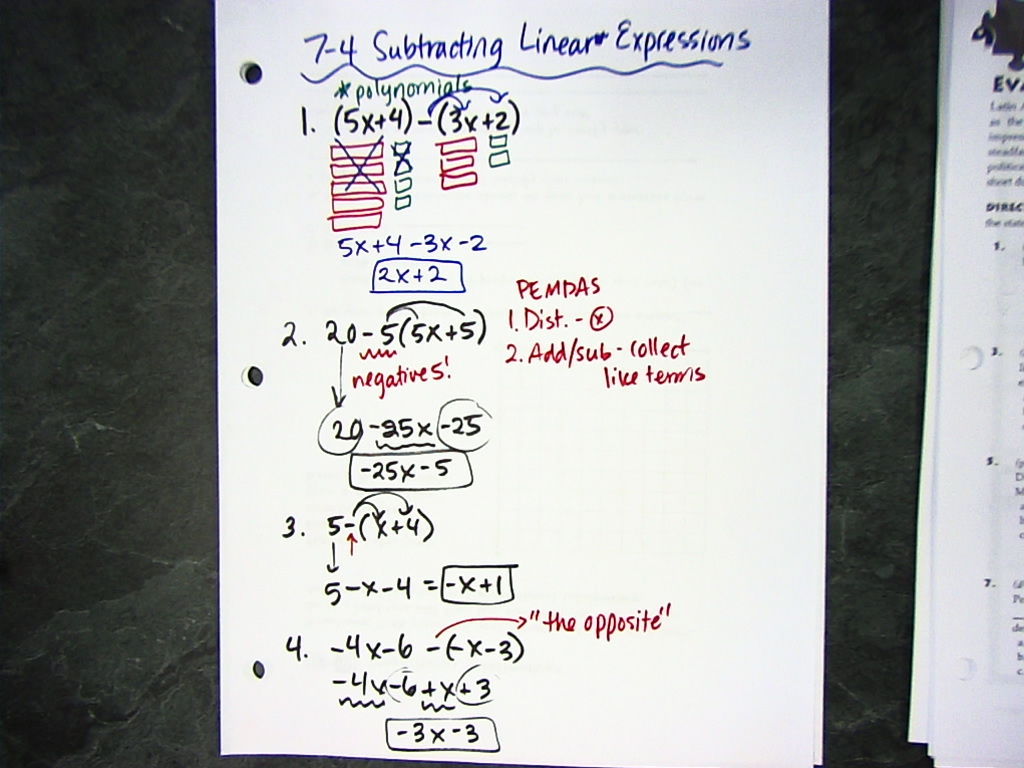 7-4 Subtracting Linear Expressions
* polynomials
1. (5x+4) - (3x+2)
5x+4-3x-2
2x+2
2. 20-5(5x+5)
negative 5!
PEMDAS
1. Dist. - ⓧ
2. Add/sub - collect
like terms
20 -25x -25
-25x-5
3. 5-(x+4)
5-x-4 = -x+1
"the opposite"
4. -4x-6 -(-x-3)
-4x-6+x+3
-3x-3
EVA
Latin
as the
DIREC
the state
1.
3.
5.
7.